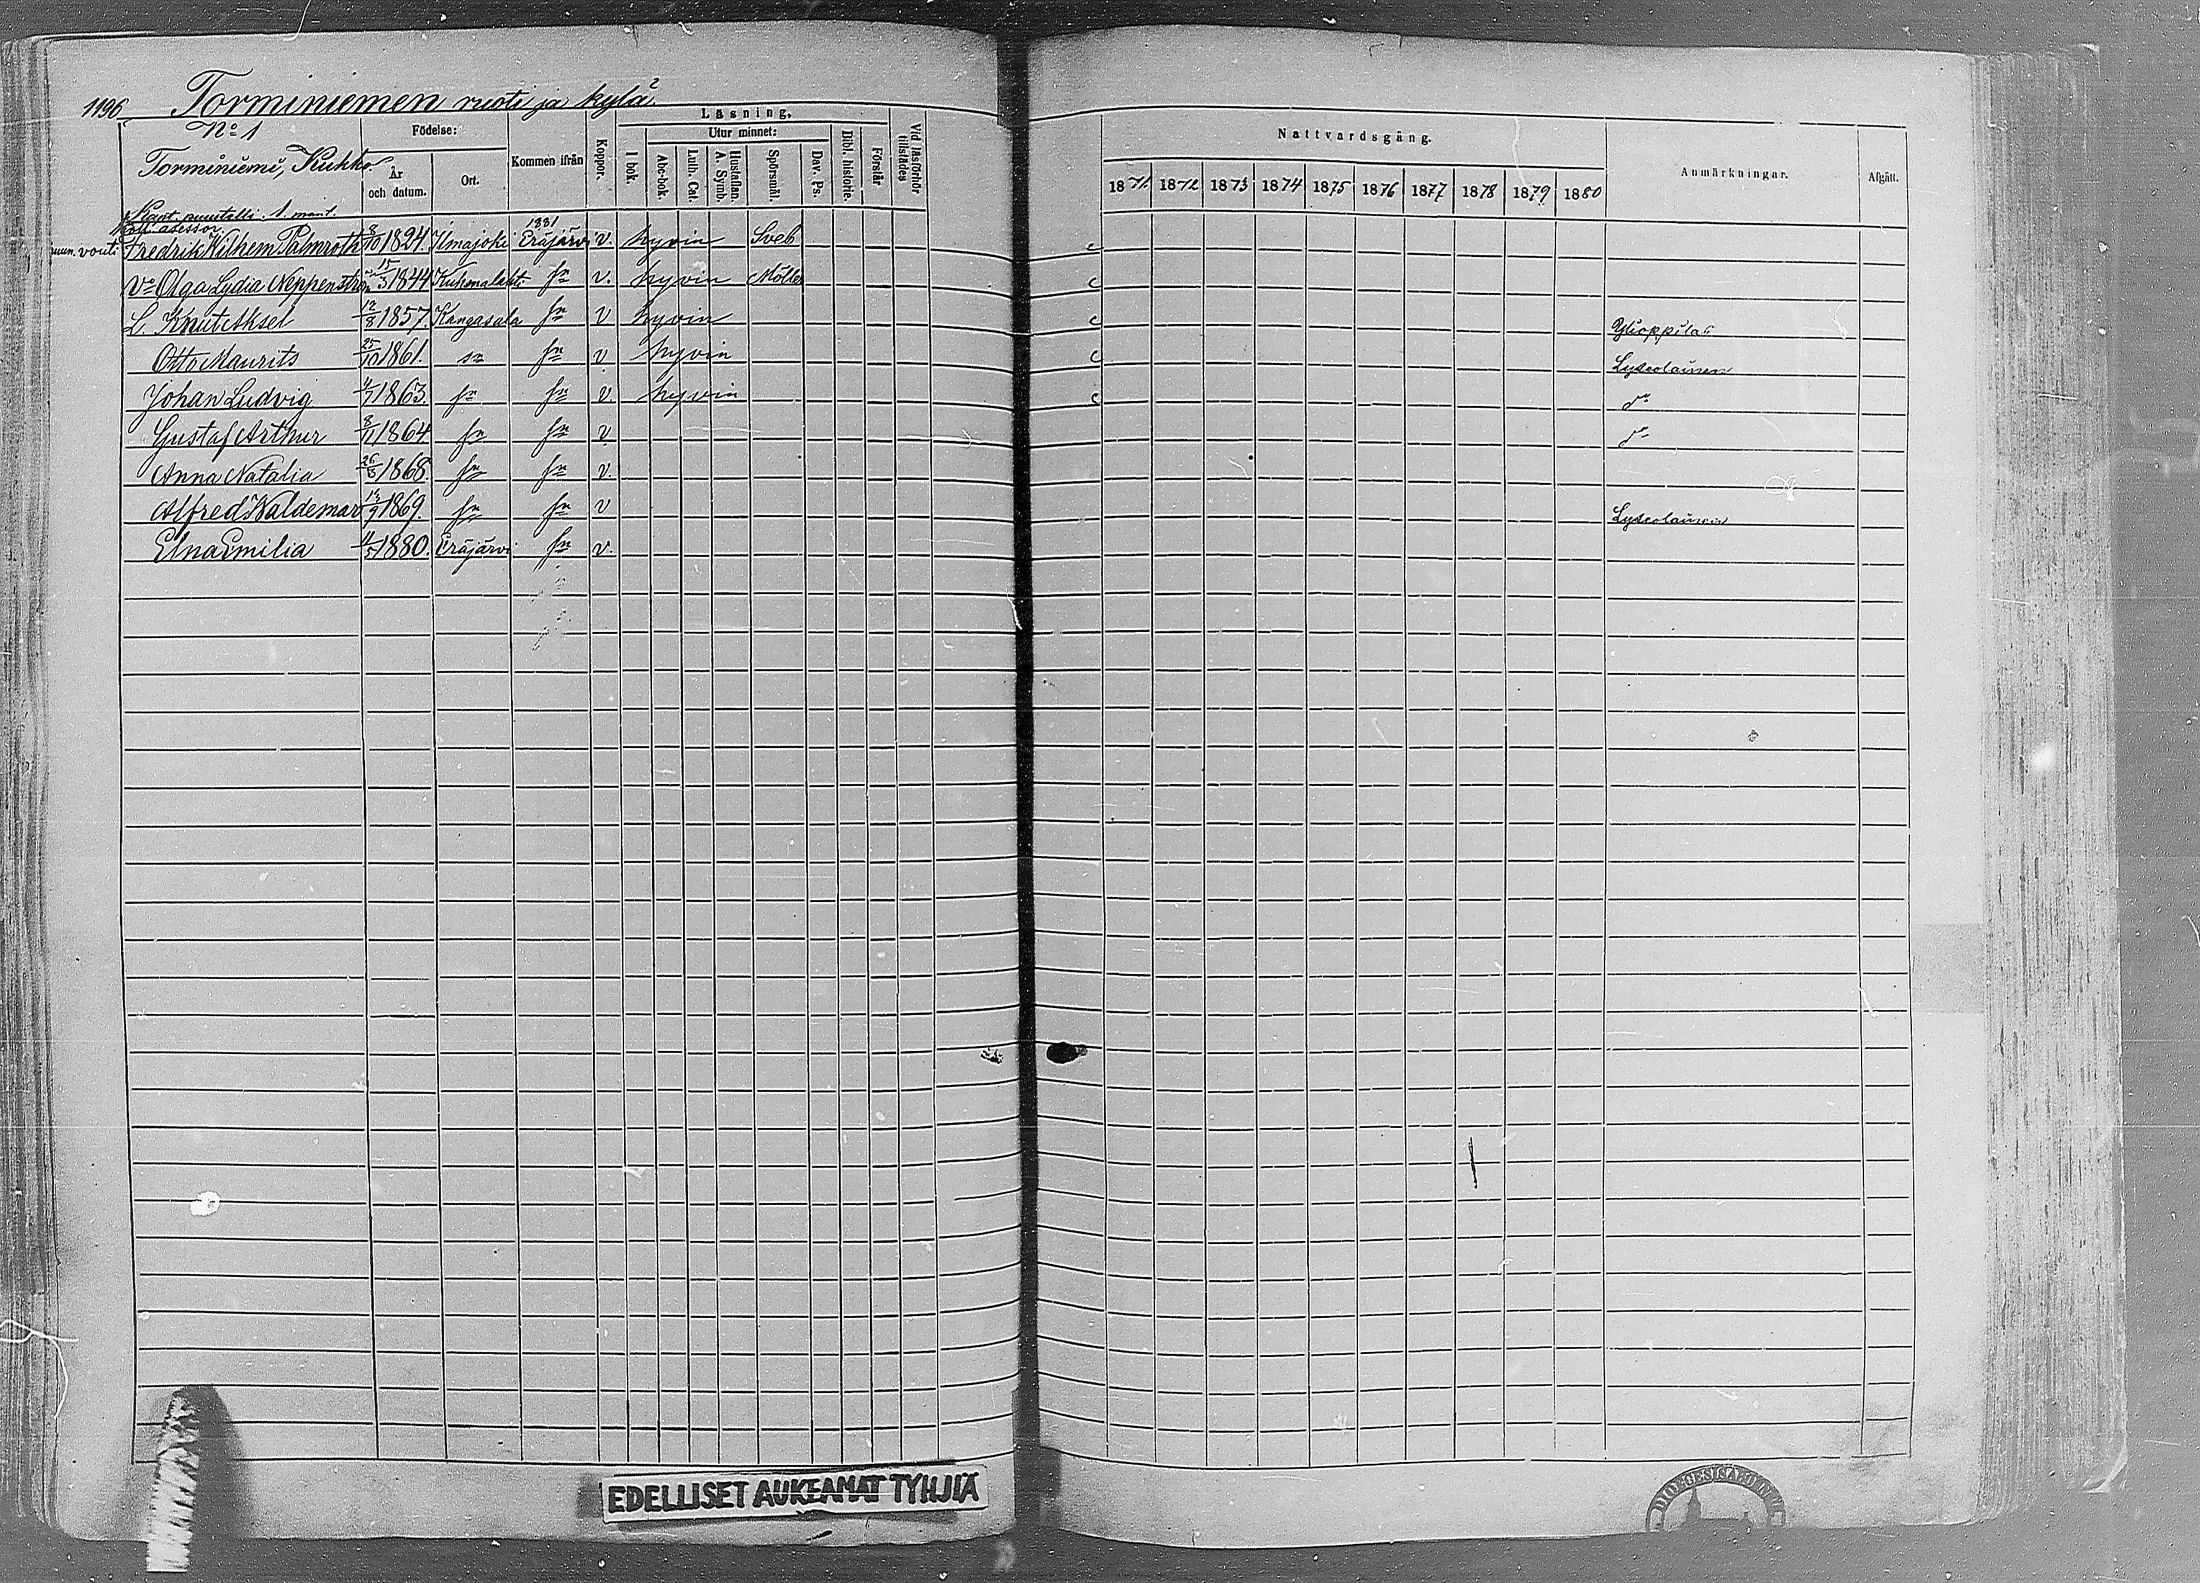 1196 Torminiemen ruoti ja kylä.
No 1
Torminiemi, Kukko.
Födelse:
År och datum.
Ort.
Kommen ifrån
Koppor.
Läsning.
I bok.
Utur minnet:
Abc-bok.
Luth. Cat.
Hustaflan. A. Symb.
Spörsmål.
Dav. Ps.
Bibl. historie.
Förstår
Vid läsförhör tillstädes
Nattvardsgång.
1871. 1872 1873 1874 1875 1876 1877 1878 1879 1880
Anmärkningar.
Afgått.
1. mant.
asessor. 1881
vouti Fredrik Wilhem Palmroth 8/10 1824. Ilmajoki Eräjärvi v. hyvin Sveb c
Vo Olga Lydia Neppenström 15/3 1844 Kuhmalahti sn v. hyvin Möller c
L. Knut Aksel 12/8 1857. Kangasala sn v hyvin c Ylioppilas
Otto Maurits 25/10 1861. sn sn v hyvin c Lyseolainen
Johan Ludvig 4/7 1863. sn sn v. hyvin c sn
Gustaf Arthur 8/11 1864 sn sn v sn
Anna Natalia 26/5 1868 sn sn v.
Alfred Waldemar 13/9 1869. sn sn v Lyseolainen
Elna Emilia 11/5 1880. Eräjärvi sn v.
EDELLISET AUKEAMAT TYHJIÄ